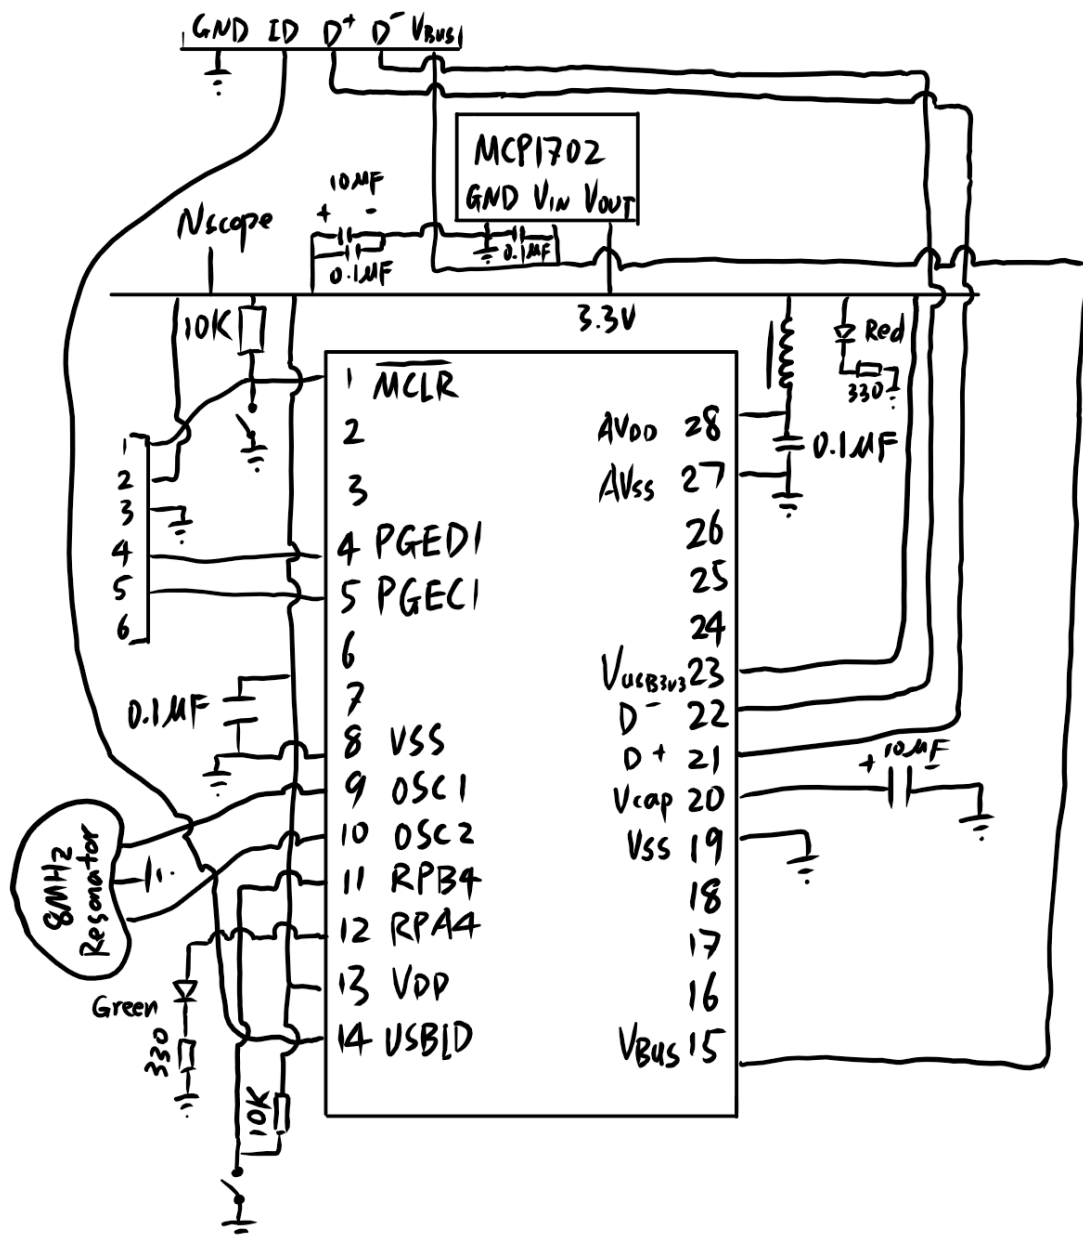 GND ID D+ D- VBUS
MCP1702
GND VIN VOUT
10µF
+ -
0.1µF
0.1µF
Nscope
3.3V
10K
Red
330
1 MCLR
2
3
4 PGED1
5 PGEC1
6
7
8 VSS
9 OSC1
10 OSC2
11 RPB4
12 RPA4
13 VDD
14 USBID
AVDD 28
AVSS 27
26
25
24
VUSB3V3 23
D- 22
D+ 21
Vcap 20
VSS 19
18
17
16
VBUS 15
0.1µF
+ 10µF
1
2
3
4
5
6
0.1µF
8MHz
Resonator
Green
330
10K